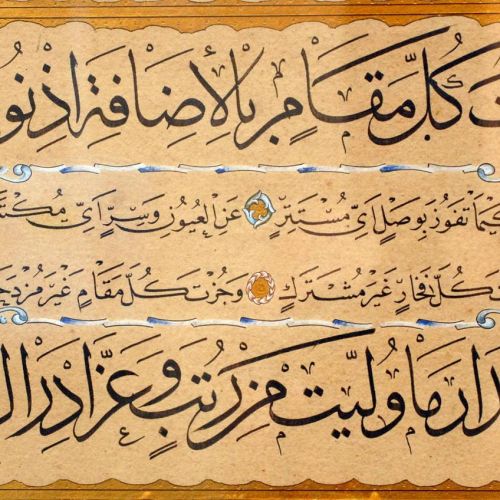 كُلَّ مَقَامٍ بِالْأِضَافَةِ اِذْ نُو
كَيْمَا تَفُوزَ بِوَصْلٍ اَيِّ مُسْتَتِرٍ عَنِ الْعُيُونِ وَسِرٍّ اَيِّ مُكْتَ
كُلَّ فَخَارٍ غَيْرَ مُشْتَرَكٍ وَجُزْتَ كُلَّ مَقَامٍ غَيْرَ مُزْدَحَ
دَارُ مَا وُلِّيتَ مِنْ رُتَبٍ وَعَزَّ اِدْرَاكُ